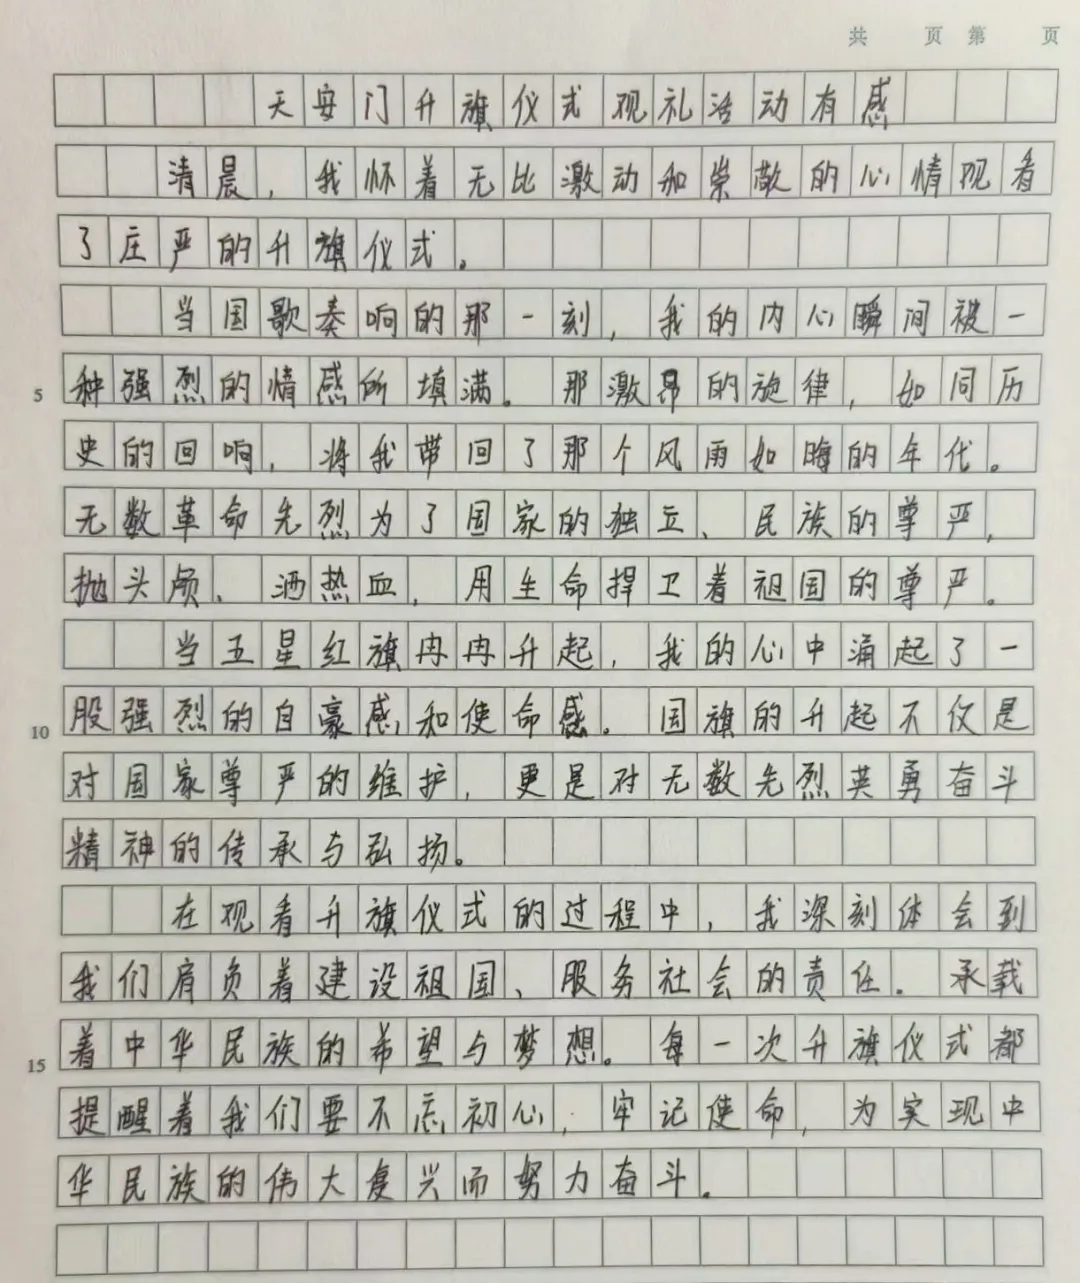 共 页 第 页
天安门升旗仪式观礼活动有感
清晨，我怀着无比激动和崇敬的心情观看
了庄严的升旗仪式。
当国歌奏响的那一刻，我的内心瞬间被一
5 种强烈的情感所填满。那激昂的旋律，如同历
史的回响，将我带回了那个风雨如晦的年代。
无数革命先烈为了国家的独立、民族的尊严，
抛头颅、洒热血，用生命捍卫着祖国的尊严。
当五星红旗冉冉升起，我的心中涌起了一
10 股强烈的自豪感和使命感。国旗的升起不仅是
对国家尊严的维护，更是对无数先烈英勇奋斗
精神的传承与弘扬。
在观看升旗仪式的过程中，我深刻体会到
我们肩负着建设祖国、服务社会的责任。承载
15 着中华民族的希望与梦想。每一次升旗仪式都
提醒着我们要不忘初心，牢记使命，为实现中
华民族的伟大复兴而努力奋斗。